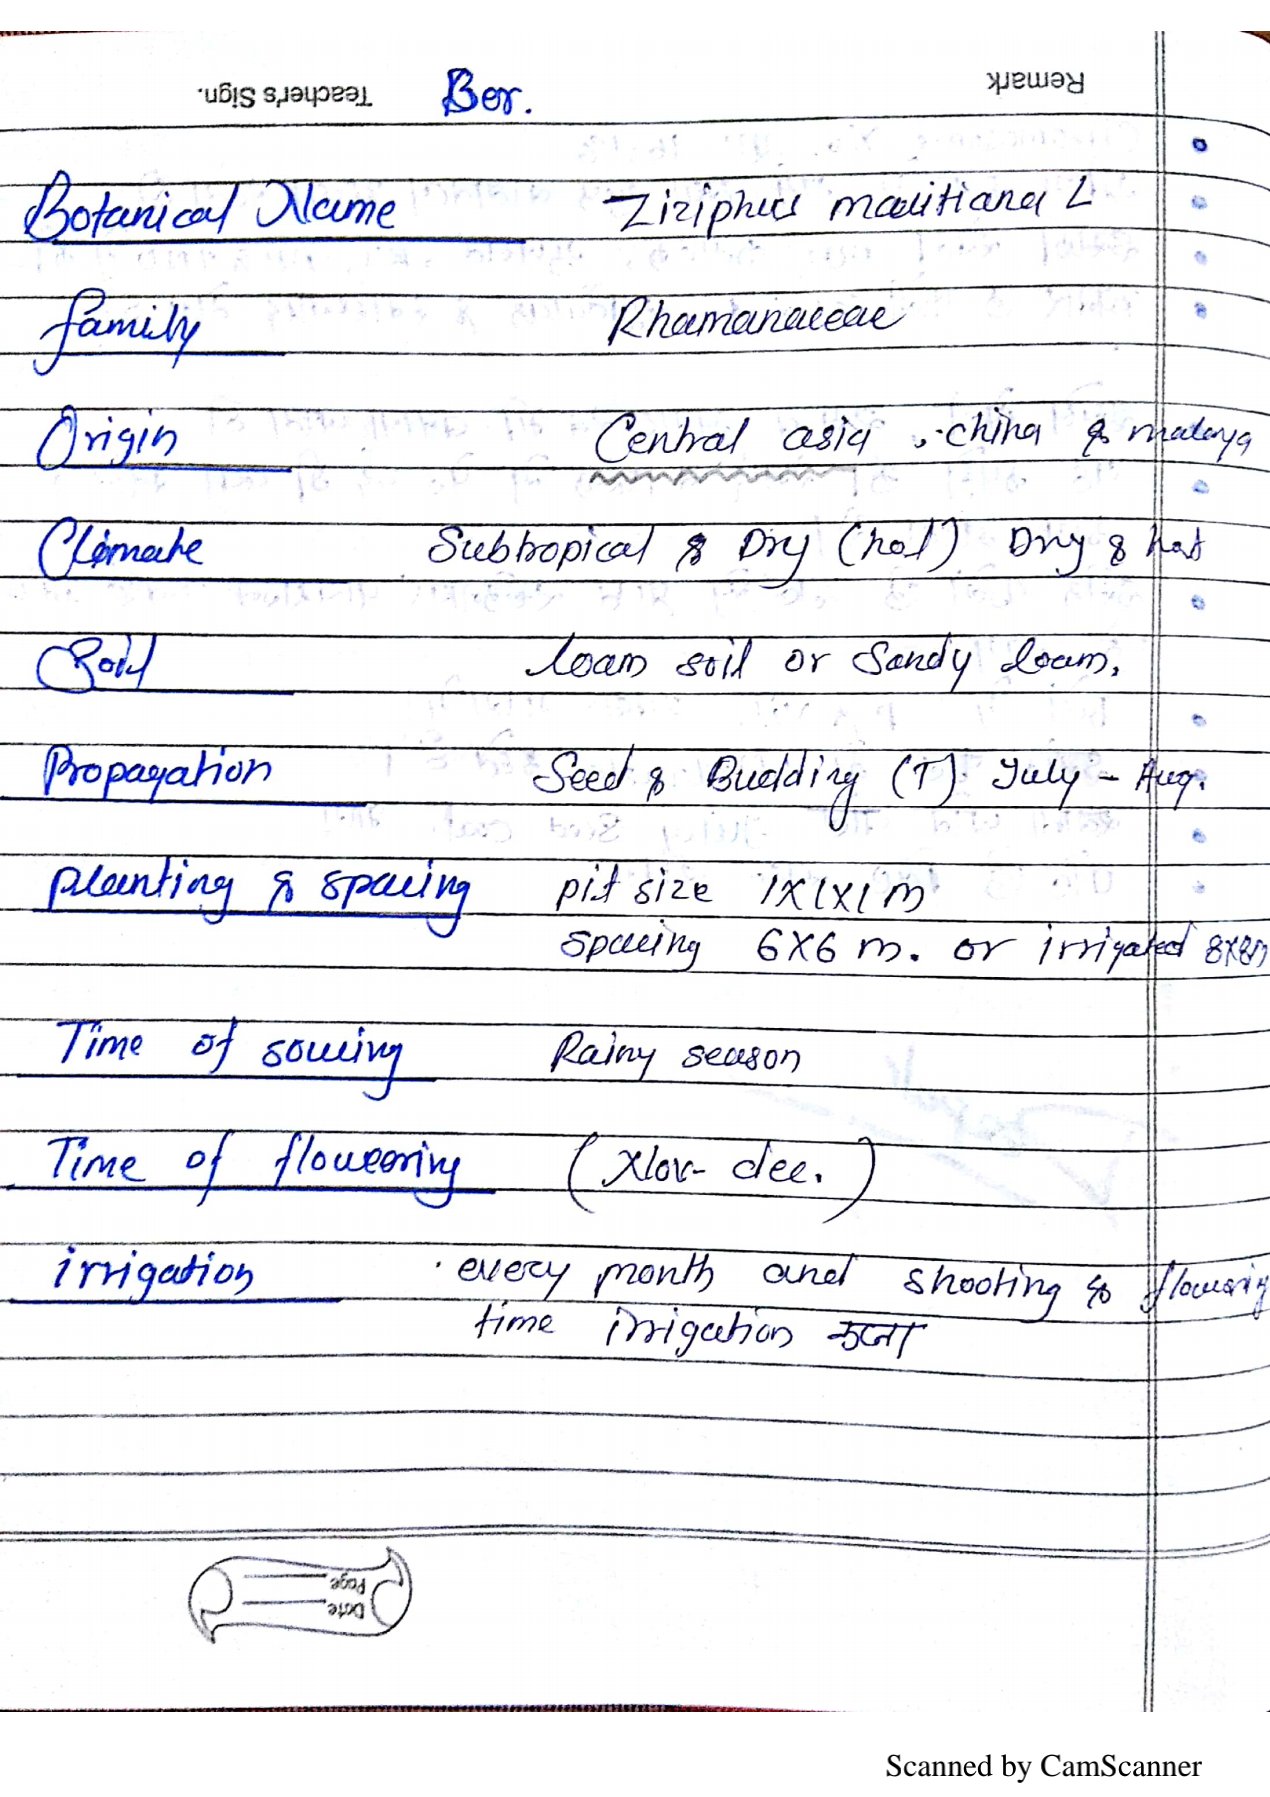 Teacher's Sign.
Ber.
Remark
Botanical Name Ziziphus mauitiana L
family Rhamanaceae
Origin Central asia, china & malaya
Climate Subtropical & Dry (hot) Dry & hot
Soil loam soil or Sandy loam.
Propagation Seed & Budding (T) July - Aug.
planting & spacing pit size 1x1x1 m
spacing 6x6 m. or irrigated 8x8m
Time of sowing Rainy season
Time of flowering (Nov- dec.)
irrigation every month and shooting & flowering
time irrigation करना
Page
Date
Scanned by CamScanner